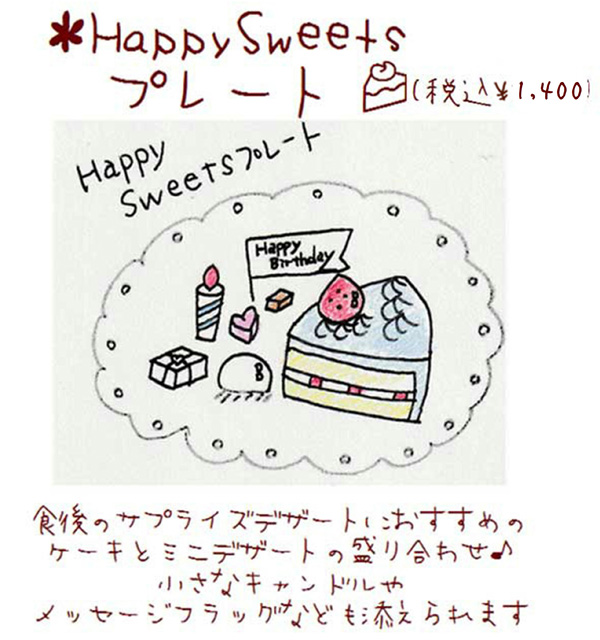 *HappySweets
プレート (税込¥1,400)
Happy
Sweetsプレート
Happy
Birthday
食後のサプライズデザートにおすすめの
ケーキとミニデザートの盛り合わせ♪
小さなキャンドルや
メッセージフラッグなども添えられます